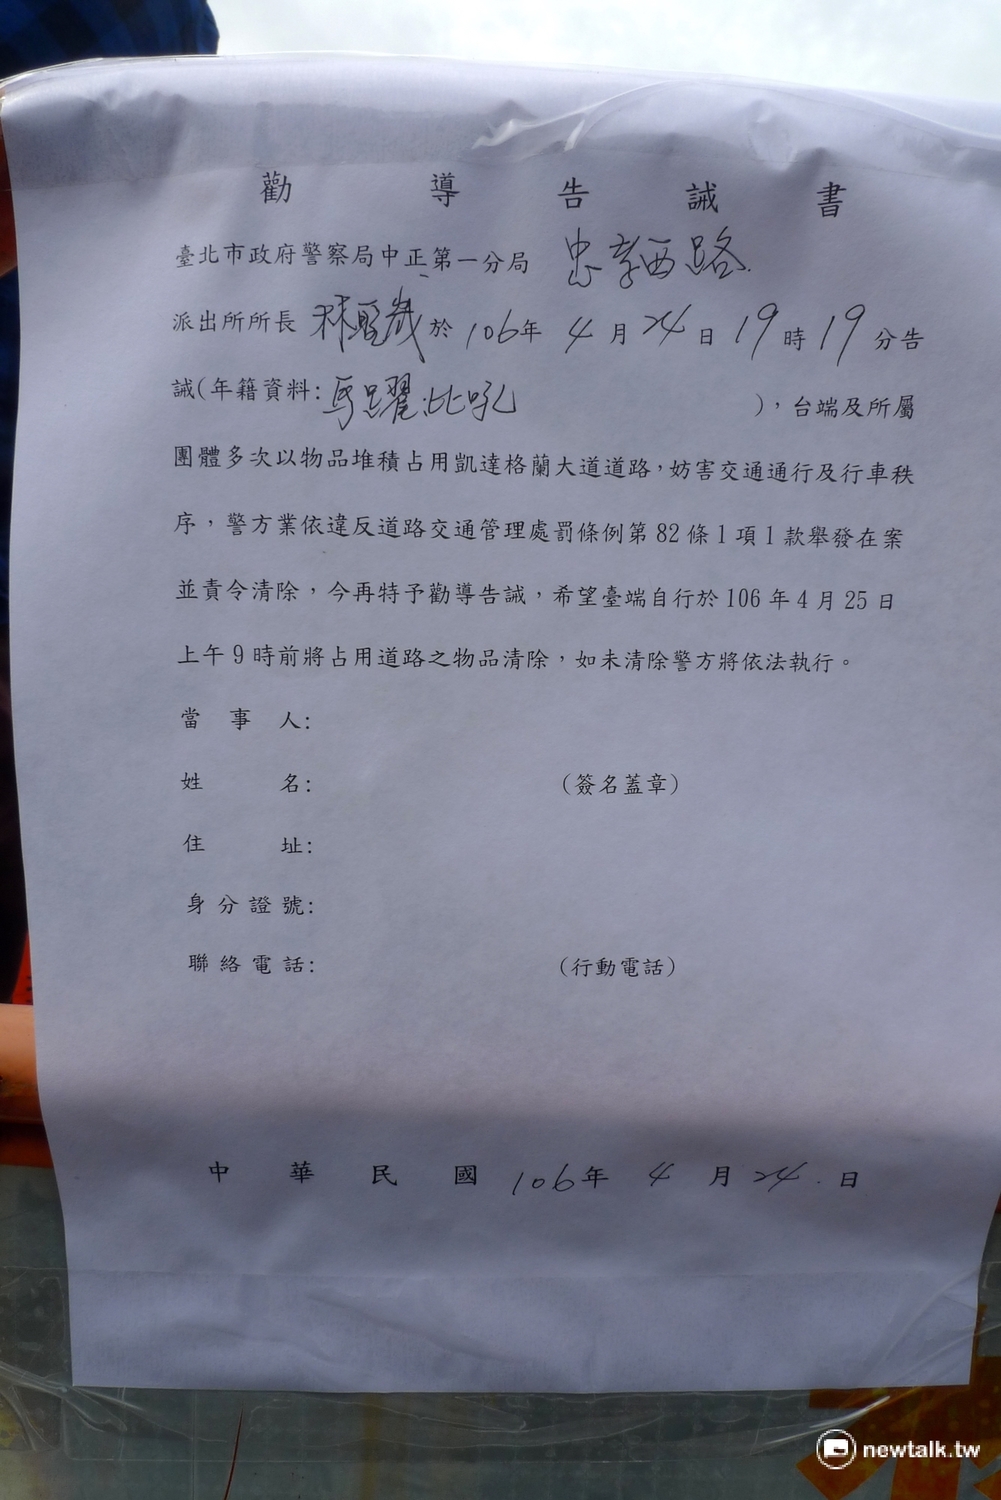 勸導告誡書
臺北市政府警察局中正第一分局 忠孝西路
派出所所長 林聖崴 於 106年 4 月 24 日 19 時 19 分告
誡(年籍資料:馬躍.比吼 ),台端及所屬
團體多次以物品堆積占用凱達格蘭大道道路,妨害交通通行及行車秩
序,警方業依違反道路交通管理處罰條例第 82 條 1 項 1 款舉發在案
並責令清除,今再特予勸導告誡,希望臺端自行於 106 年 4 月 25 日
上午 9 時前將占用道路之物品清除,如未清除警方將依法執行。
當事人:
姓名: (簽名蓋章)
住址:
身分證號:
聯絡電話: (行動電話)
中華民國 106年 4 月 24.日
newtalk.tw